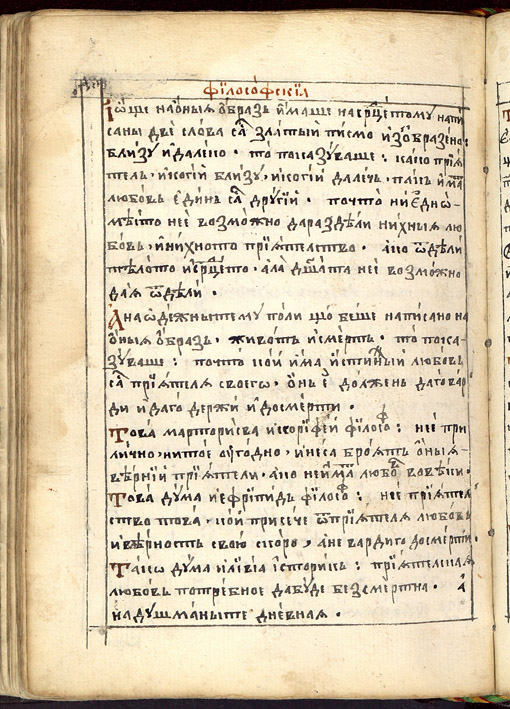 філосо́фскїѧ
І ѡще на о́ныѧ ѡ́бразъ и҆маше на ср҃цето му напи
саны две сло́ва са̀ златы́й пи́смо и҆зѡбразено:
бли́зу и҆ дале́ко · то пока́зуваше : како прїѧ́
тель, и҆ когїй близу, и҆ когїй дале́чь, пакъ и҆́ма
любо́въ е҆ди́нъ са̀ дрꙋгїй · почто ни є҆дно
мѣсто неѐ возмо́жно да раздѣли ни́хныѧ лю
бовь, и҆ ни́хното прїѧ́телство · ако ѿдѣли
тѣлото и҆ ср҃цето · ала дш҃ата неѐ возмо́жно
да ѧ ѿдѣли ·
А на ѡде́жныте му поли що бе́ше напи́сано на
о́ныѧ ѡ́бразъ · животъ и҆ сме́рть · то пока
зуваше : почто ко́й и҆ма и҆стинный любовь
са̀ прїѧ́телѧ своего̀, о́нъ е҆ до́лженъ да го ва́р
ди и҆ да го держи и҆ до сме́рти ·
Това марторисва и҆ корїфей філосо́ф : неѐ при
ли́чно, нито ѹго́дно, и҆ не са броѧтъ о́ныѧ
вѣ́рнїй прїѧ́тели, ако не и҆матъ любовь во вѣки ·
Това дума и҆ є҆фрїпидъ філосо́ф : неѐ прїѧ́тел
ство това, кой пресече ѿ прїѧ́телѧ любовь
и҆ вѣрность свою скоро, а не варди го до сме́рти ·
Такѡ дума и҆ ли́вїа і҆сторикъ : прїѧ́телскаѧ
любовь потребное да бу́де безсме́ртна · а҆
на душма́ныте дне́внаѧ ·